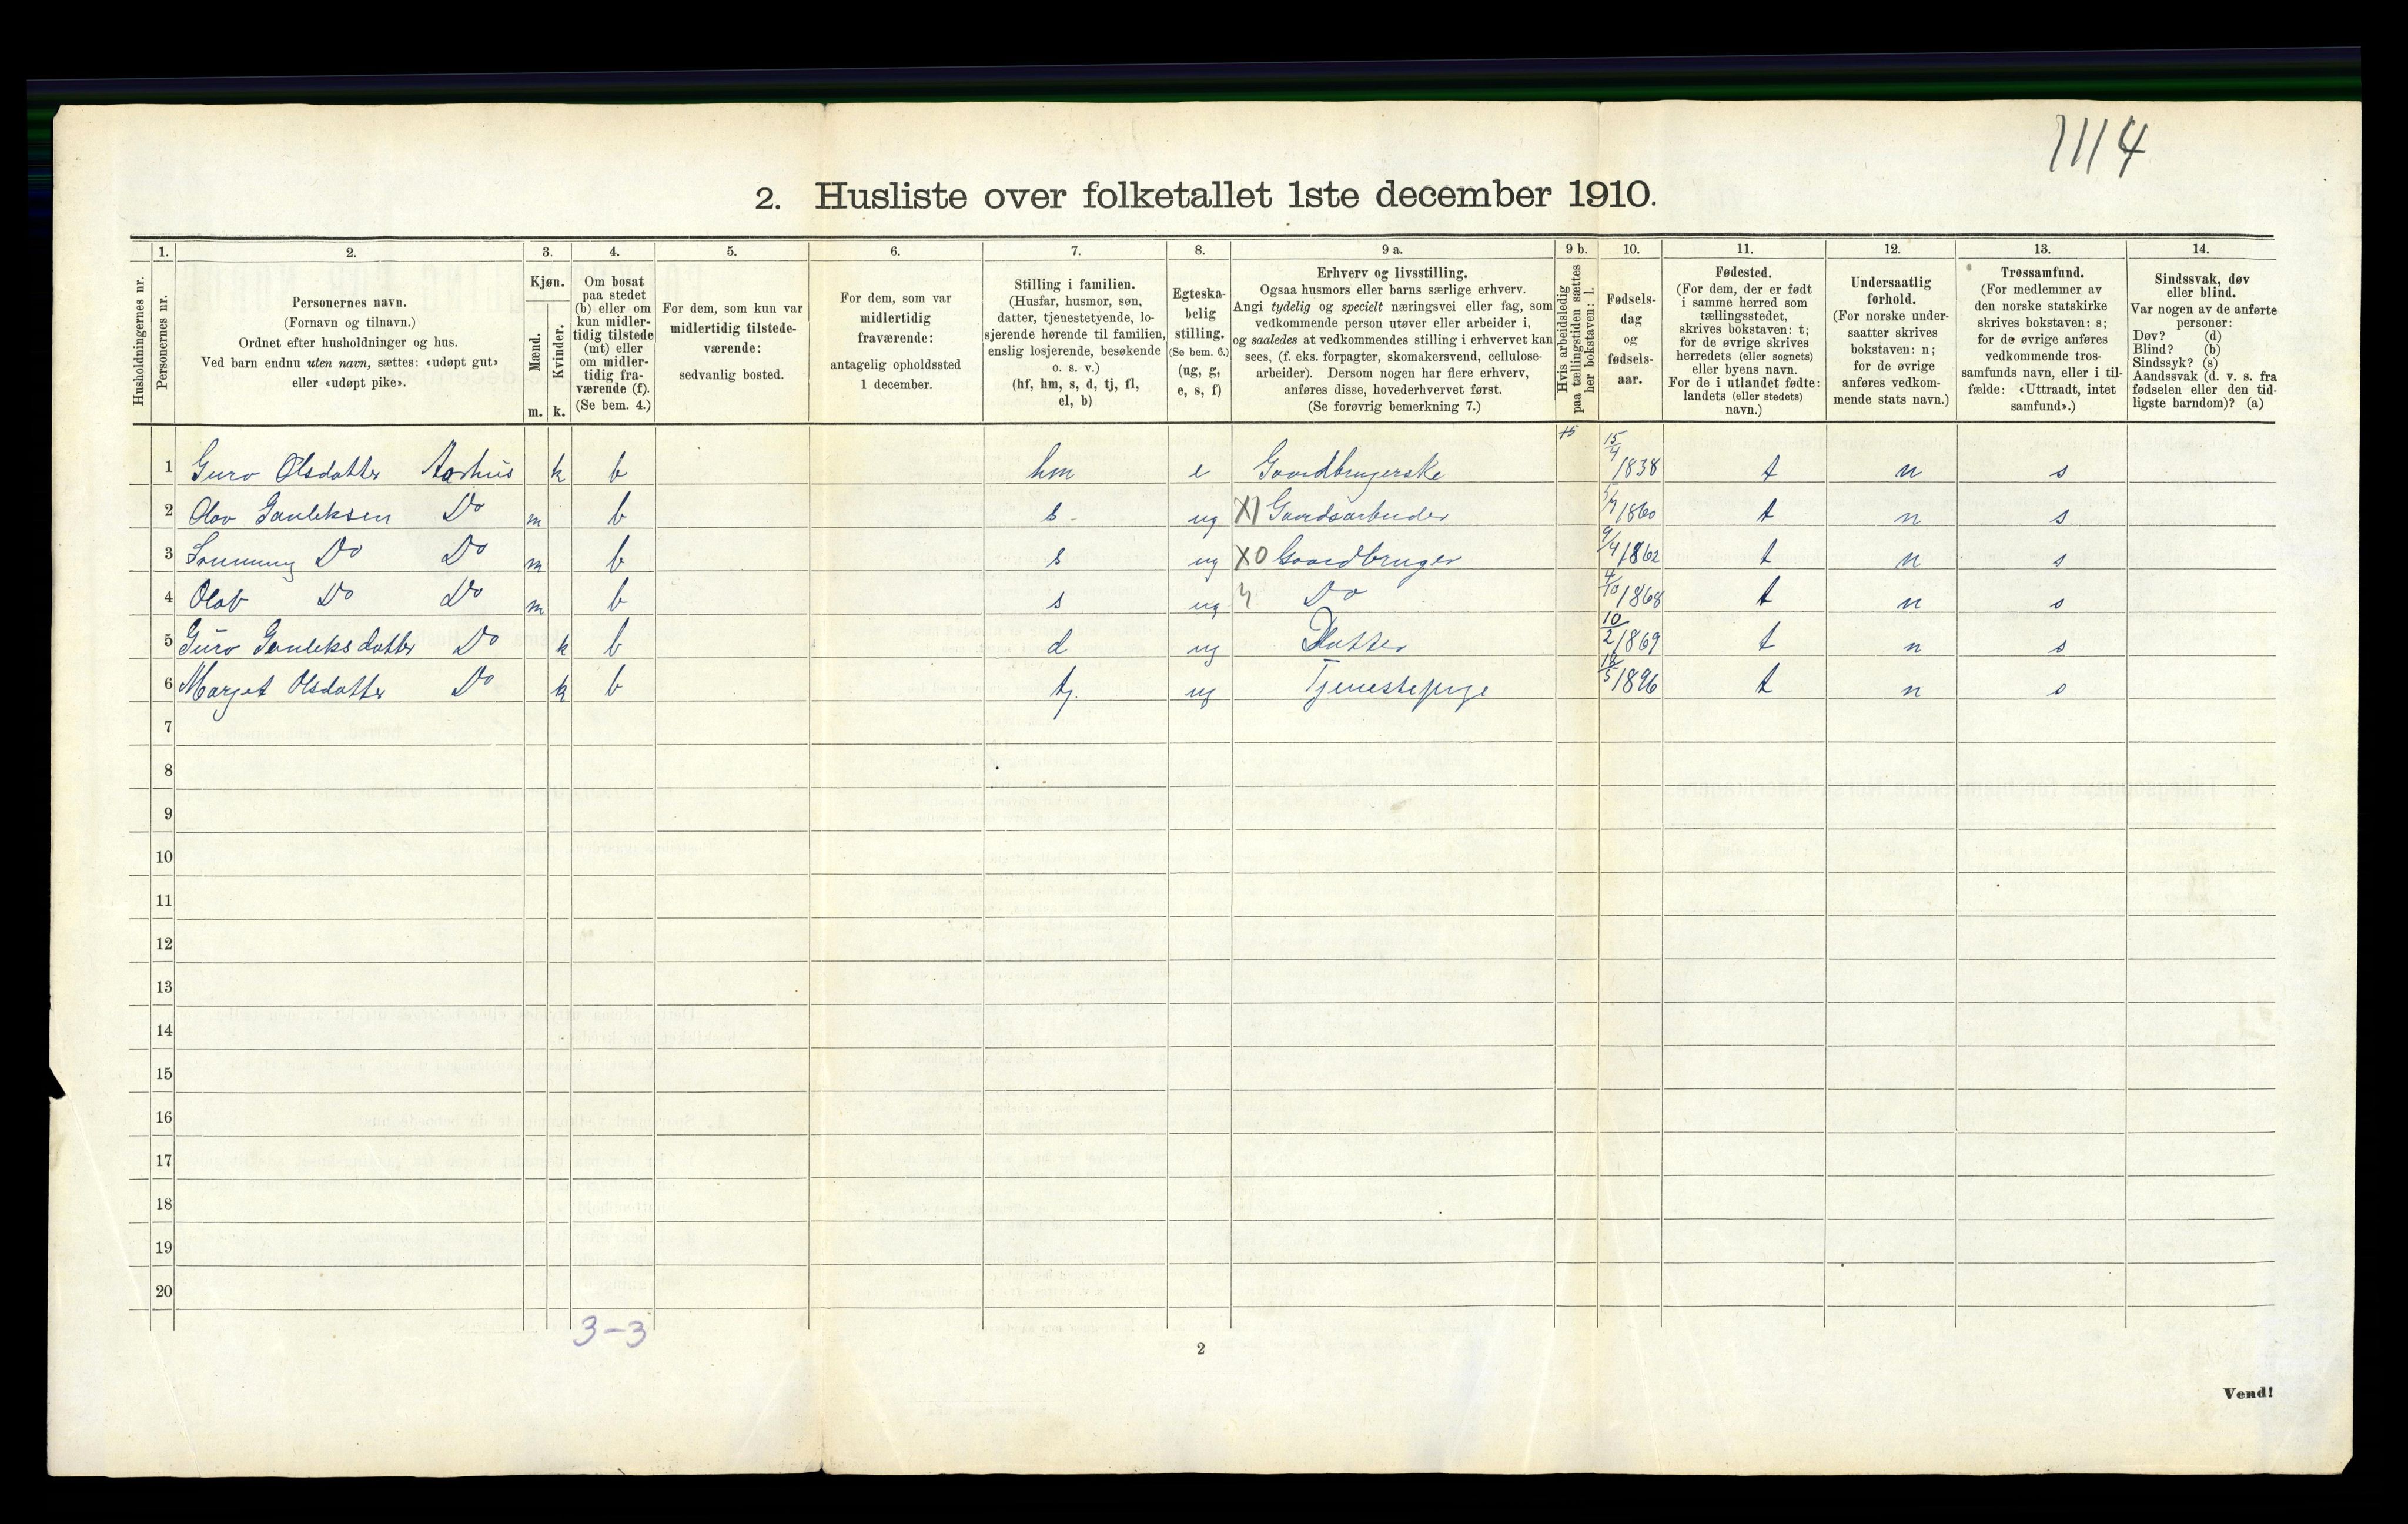 1114
2. Husliste over folketallet 1ste december 1910.
Husholdningernes nr.
1.
Personernes nr.
2.
Personernes navn.
(Fornavn og tilnavn.)
Ordnet efter husholdninger og hus.
Ved barn endnu uten navn, sættes: «udøpt gut»
eller «udøpt pike».
3.
Kjøn.
Mænd.
Kvinder.
m. k.
4.
Om bosat
paa stedet
(b) eller om
kun midler-
tidig tilstede
(mt) eller
om midler-
tidig fra-
værende (f).
(Se bem. 4.)
5.
For dem, som kun var
midlertidig tilstede-
værende:
sedvanlig bosted.
6.
For dem, som var
midlertidig
fraværende:
antagelig opholdssted
1 december.
7.
Stilling i familien.
(Husfar, husmor, søn,
datter, tjenestetyende, lo-
sjerende hørende til familien,
enslig losjerende, besøkende
o. s. v.)
(hf, hm, s, d, tj, fl,
el, b)
8.
Egteska-
belig
stilling.
(Se bem. 6.)
(ug, g,
e, s, f)
9 a.
Erhverv og livsstilling.
Ogsaa husmors eller barns særlige erhverv.
Angi tydelig og specielt næringsvei eller fag, som
vedkommende person utøver eller arbeider i,
og saaledes at vedkommendes stilling i erhvervet kan
sees, (f. eks. forpagter, skomakersvend, cellulose-
arbeider). Dersom nogen har flere erhverv,
anføres disse, hovederhvervet først.
(Se forøvrig bemerkning 7.)
9 b.
Hvis arbeidsledig
paa tællingstiden sættes
her bokstaven: l.
10.
Fødsels-
dag
og
fødsels-
aar.
11.
Fødested.
(For dem, der er født
i samme herred som
tællingsstedet,
skrives bokstaven: t;
for de øvrige skrives
herredets (eller sognets)
eller byens navn.
For de i utlandet fødte:
landets (eller stedets)
navn.)
12.
Undersaatlig
forhold.
(For norske under-
saatter skrives
bokstaven: n;
for de øvrige
anføres vedkom-
mende stats navn.)
13.
Trossamfund.
(For medlemmer av
den norske statskirke
skrives bokstaven: s;
for de øvrige anføres
vedkommende tros-
samfunds navn, eller i til-
fælde: «Uttraadt, intet
samfund».)
14.
Sindssvak, døv
eller blind.
Var nogen av de anførte
personer:
Døv? (d)
Blind? (b)
Sindssyk? (s)
Aandssvak (d. v. s. fra
fødselen eller den tid-
ligste barndom)? (a)
1 Guro Olsdatter Aarhus k b hm e Gaardbrugerske 15/4 1838 t n s
2 Olav Gauleksen Do m b s ug X1 Gaardsarbeider 1860 t n s
3 Do Do m b s ug X0 Gaardbruger 9/4 1862 t n s
4 Olav Do Do m b s ug Do 4/10 1868 t n s
5 Guro Gauleksdatter Do k b d ug Datter 10/2 1869 t n s
6 Marget Olsdatter Do k b tj. ug Tjenestepige 18/5 1896 t n s
7
8
9
10
11
12
13
14
15
16
17
18
19
20
3-3
2
Vend!